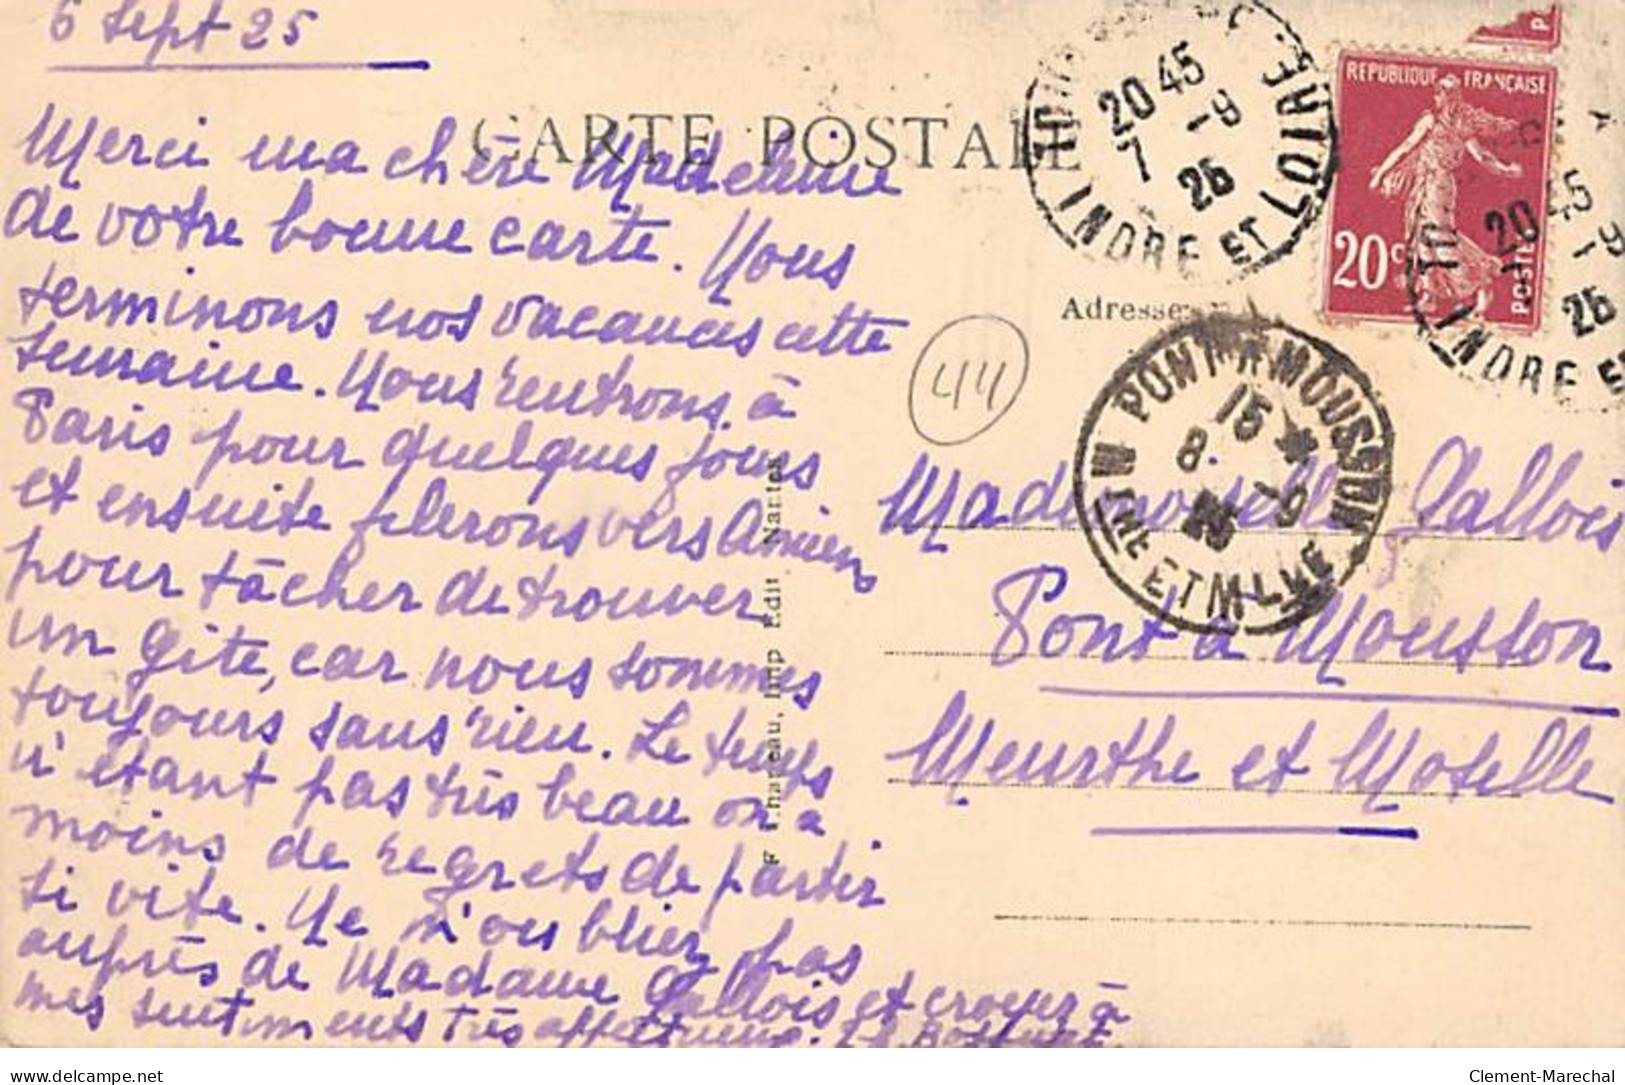 6 Sept 25
CARTE POSTALE
Merci ma chère Madeleine
de votre bonne carte. Nous
terminons nos vacances cette
semaine. Nous rentrons à
Paris pour quelques jours
et ensuite filerons vers Amiens
pour tâcher de trouver
un gîte, car nous sommes
toujours sans rien. Le temps
n'étant pas très beau on a
moins de regrets de partir
si vite. Ne m'oubliez pas
auprès de Madame Gallois et croyez à
mes sentiments très affectueux.
Adresse
44
Mademoiselle Gallois
Pont à Mousson
Meurthe et Moselle
REPUBLIQUE FRANÇAISE
20c
POSTES
20 45
7 -9
25
INDRE ET LOIRE
20 45
-9
25
INDRE ET
PONT A MOUSSON
15
8 -9
25
MTHE ET MLLE
F. Chapeau, Imp. Edit. Nantes
delcampe.net
Clement-Marechal